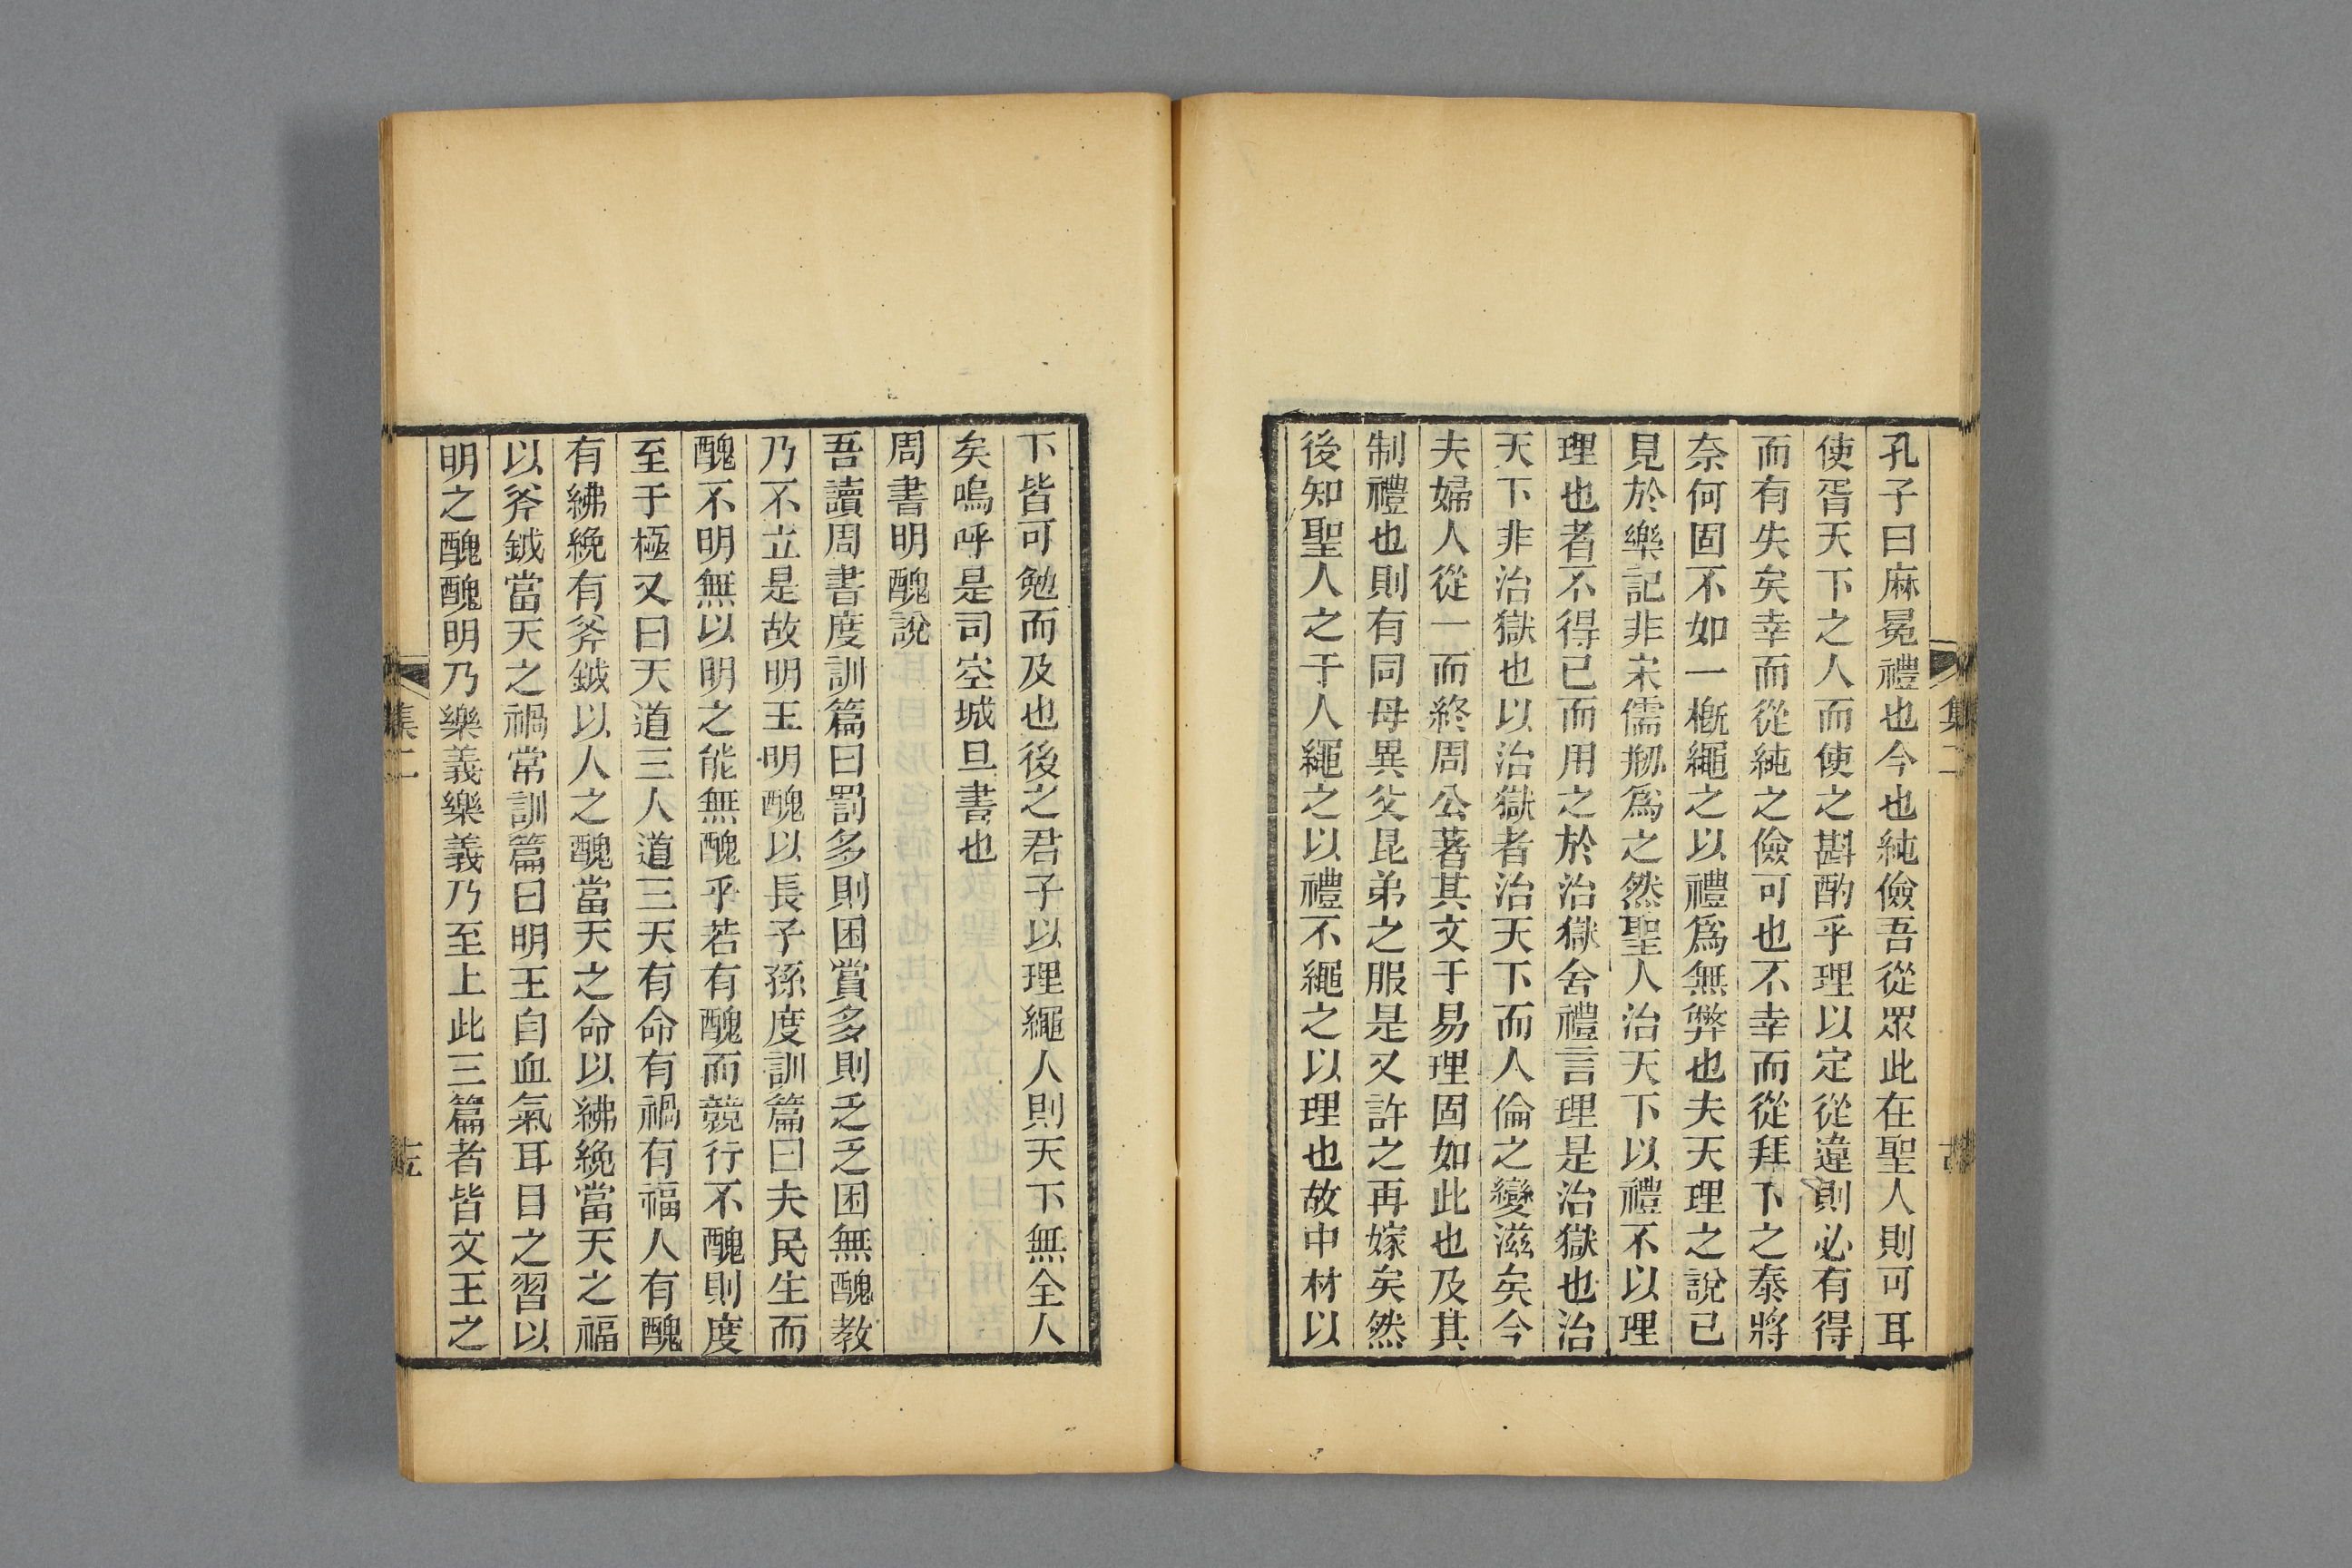 孔子曰麻冕禮也今也純儉吾從眾此在聖人則可耳
使胥天下之人而使之斟酌乎理以定從違則必有得
而有失矣幸而從純之儉可也不幸而從拜下之泰將
奈何固不如一槪繩之以禮爲無弊也夫天理之說已
見於樂記非宋儒剏爲之然聖人治天下以禮不以理
理也者不得已而用之於治獄舍禮言理是治獄也治
天下非治獄也以治獄者治天下而人倫之變滋矣今
夫婦人從一而終周公著其文于易理固如此也及其
制禮也則有同母異父昆弟之服是又許之再嫁矣然
後知聖人之于人繩之以禮不繩之以理也故中材以
下皆可勉而及也後之君子以理繩人則天下無全人
矣嗚呼是司空城旦書也
周書明醜說
吾讀周書度訓篇曰罰多則困賞多則乏乏困無醜教
乃不立是故明王明醜以長子孫度訓篇曰夫民生而
醜不明無以明之能無醜乎若有醜而競行不醜則度
至于極又曰天道三人道三天有命有禍有福人有醜
有紼絻有斧鉞以人之醜當天之命以紼絻當天之福
以斧鉞當天之禍常訓篇曰明王自血氣耳目之習以
明之醜醜明乃樂義樂義乃至上此三篇者皆文王之
集二